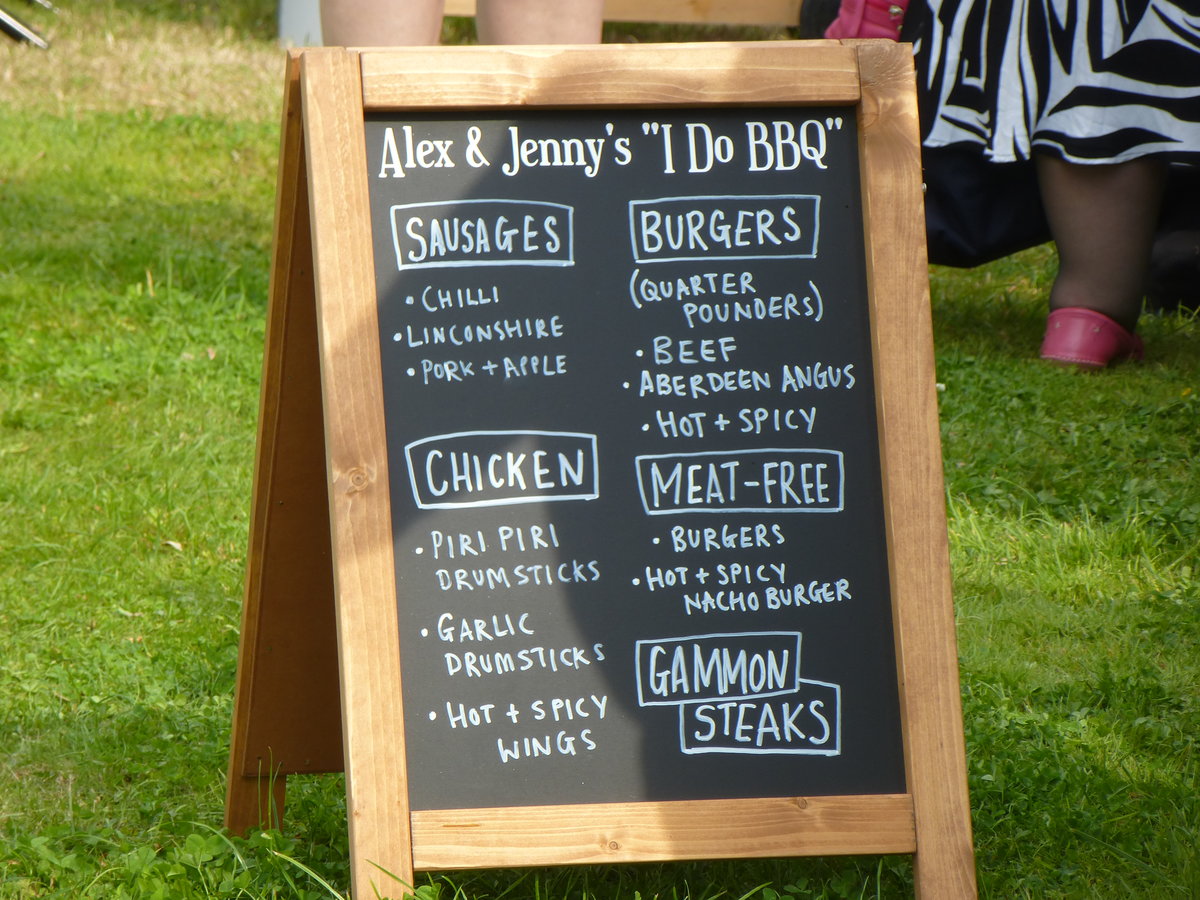 Alex & Jenny's "I Do BBQ"
SAUSAGES
• CHILLI
• LINCONSHIRE
• PORK + APPLE
CHICKEN
• PIRI PIRI
DRUMSTICKS
• GARLIC
DRUMSTICKS
• HOT + SPICY
WINGS
BURGERS
(QUARTER
POUNDERS)
• BEEF
• ABERDEEN ANGUS
• HOT + SPICY
MEAT-FREE
• BURGERS
• HOT + SPICY
NACHO BURGER
GAMMON
STEAKS